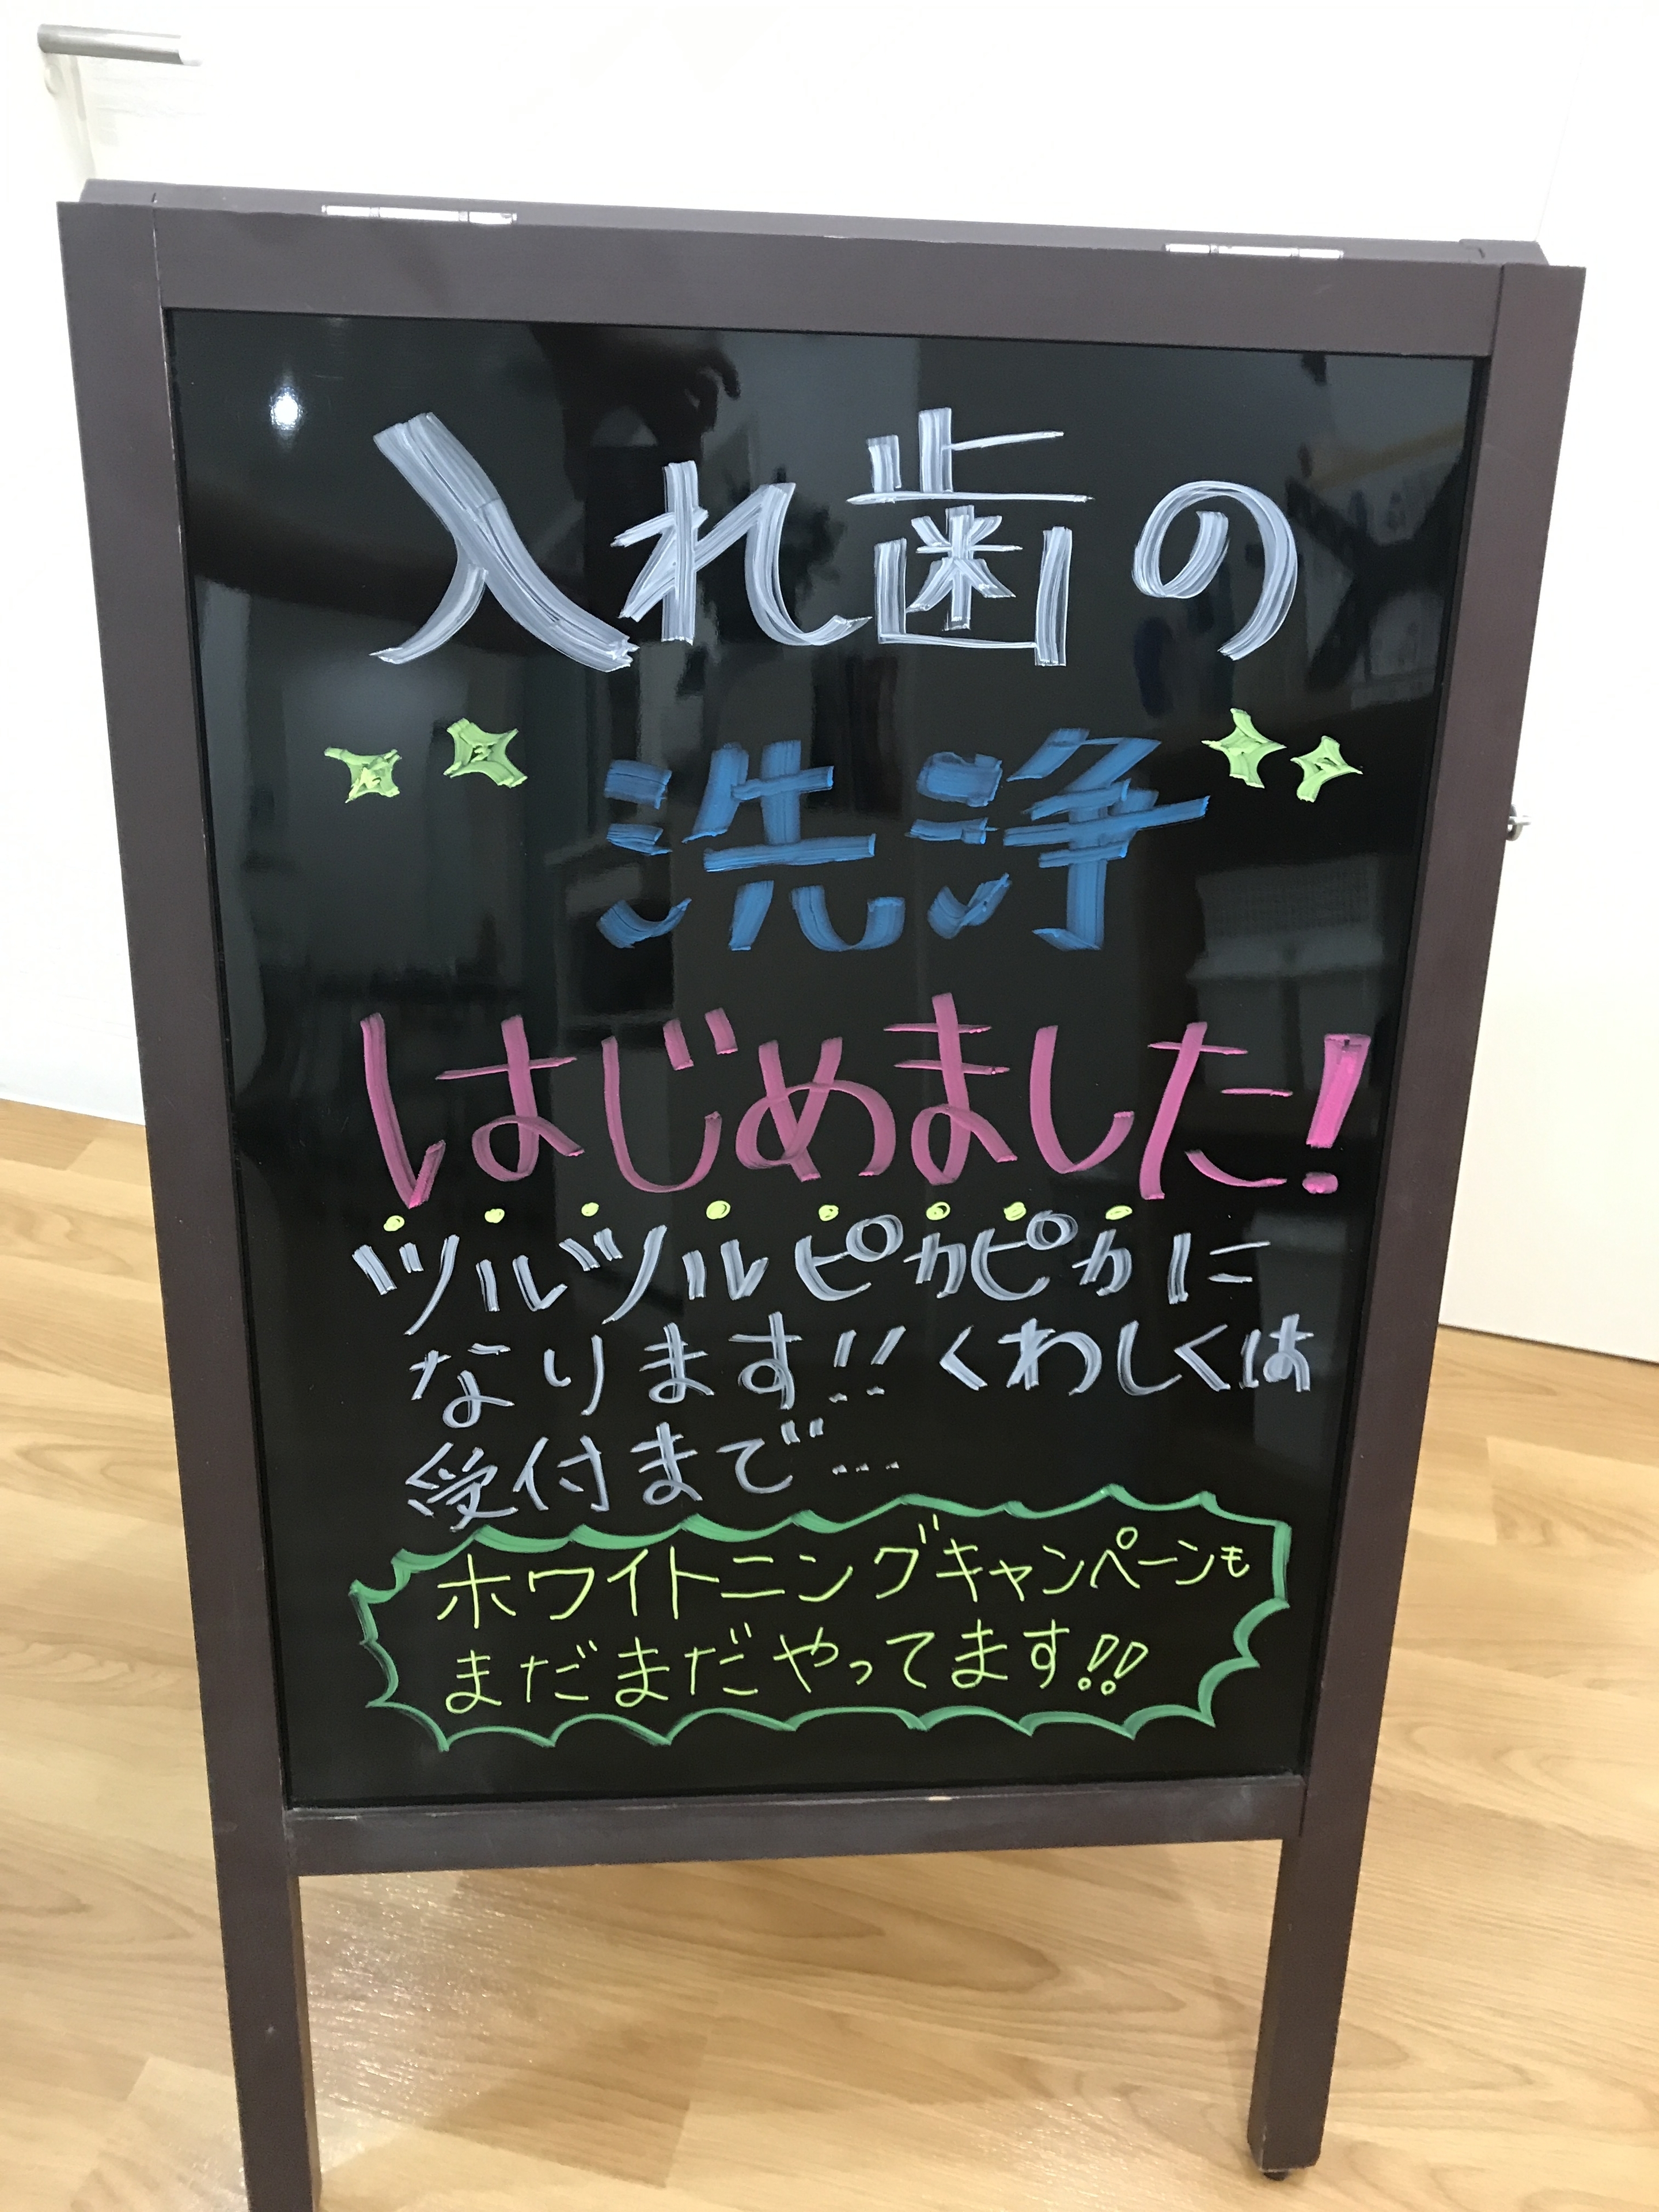 入れ歯の
洗浄
はじめました!
ツルツルピカピカに
なります!! くわしくは
受付まで…
ホワイトニングキャンペーンも
まだまだやってます!!